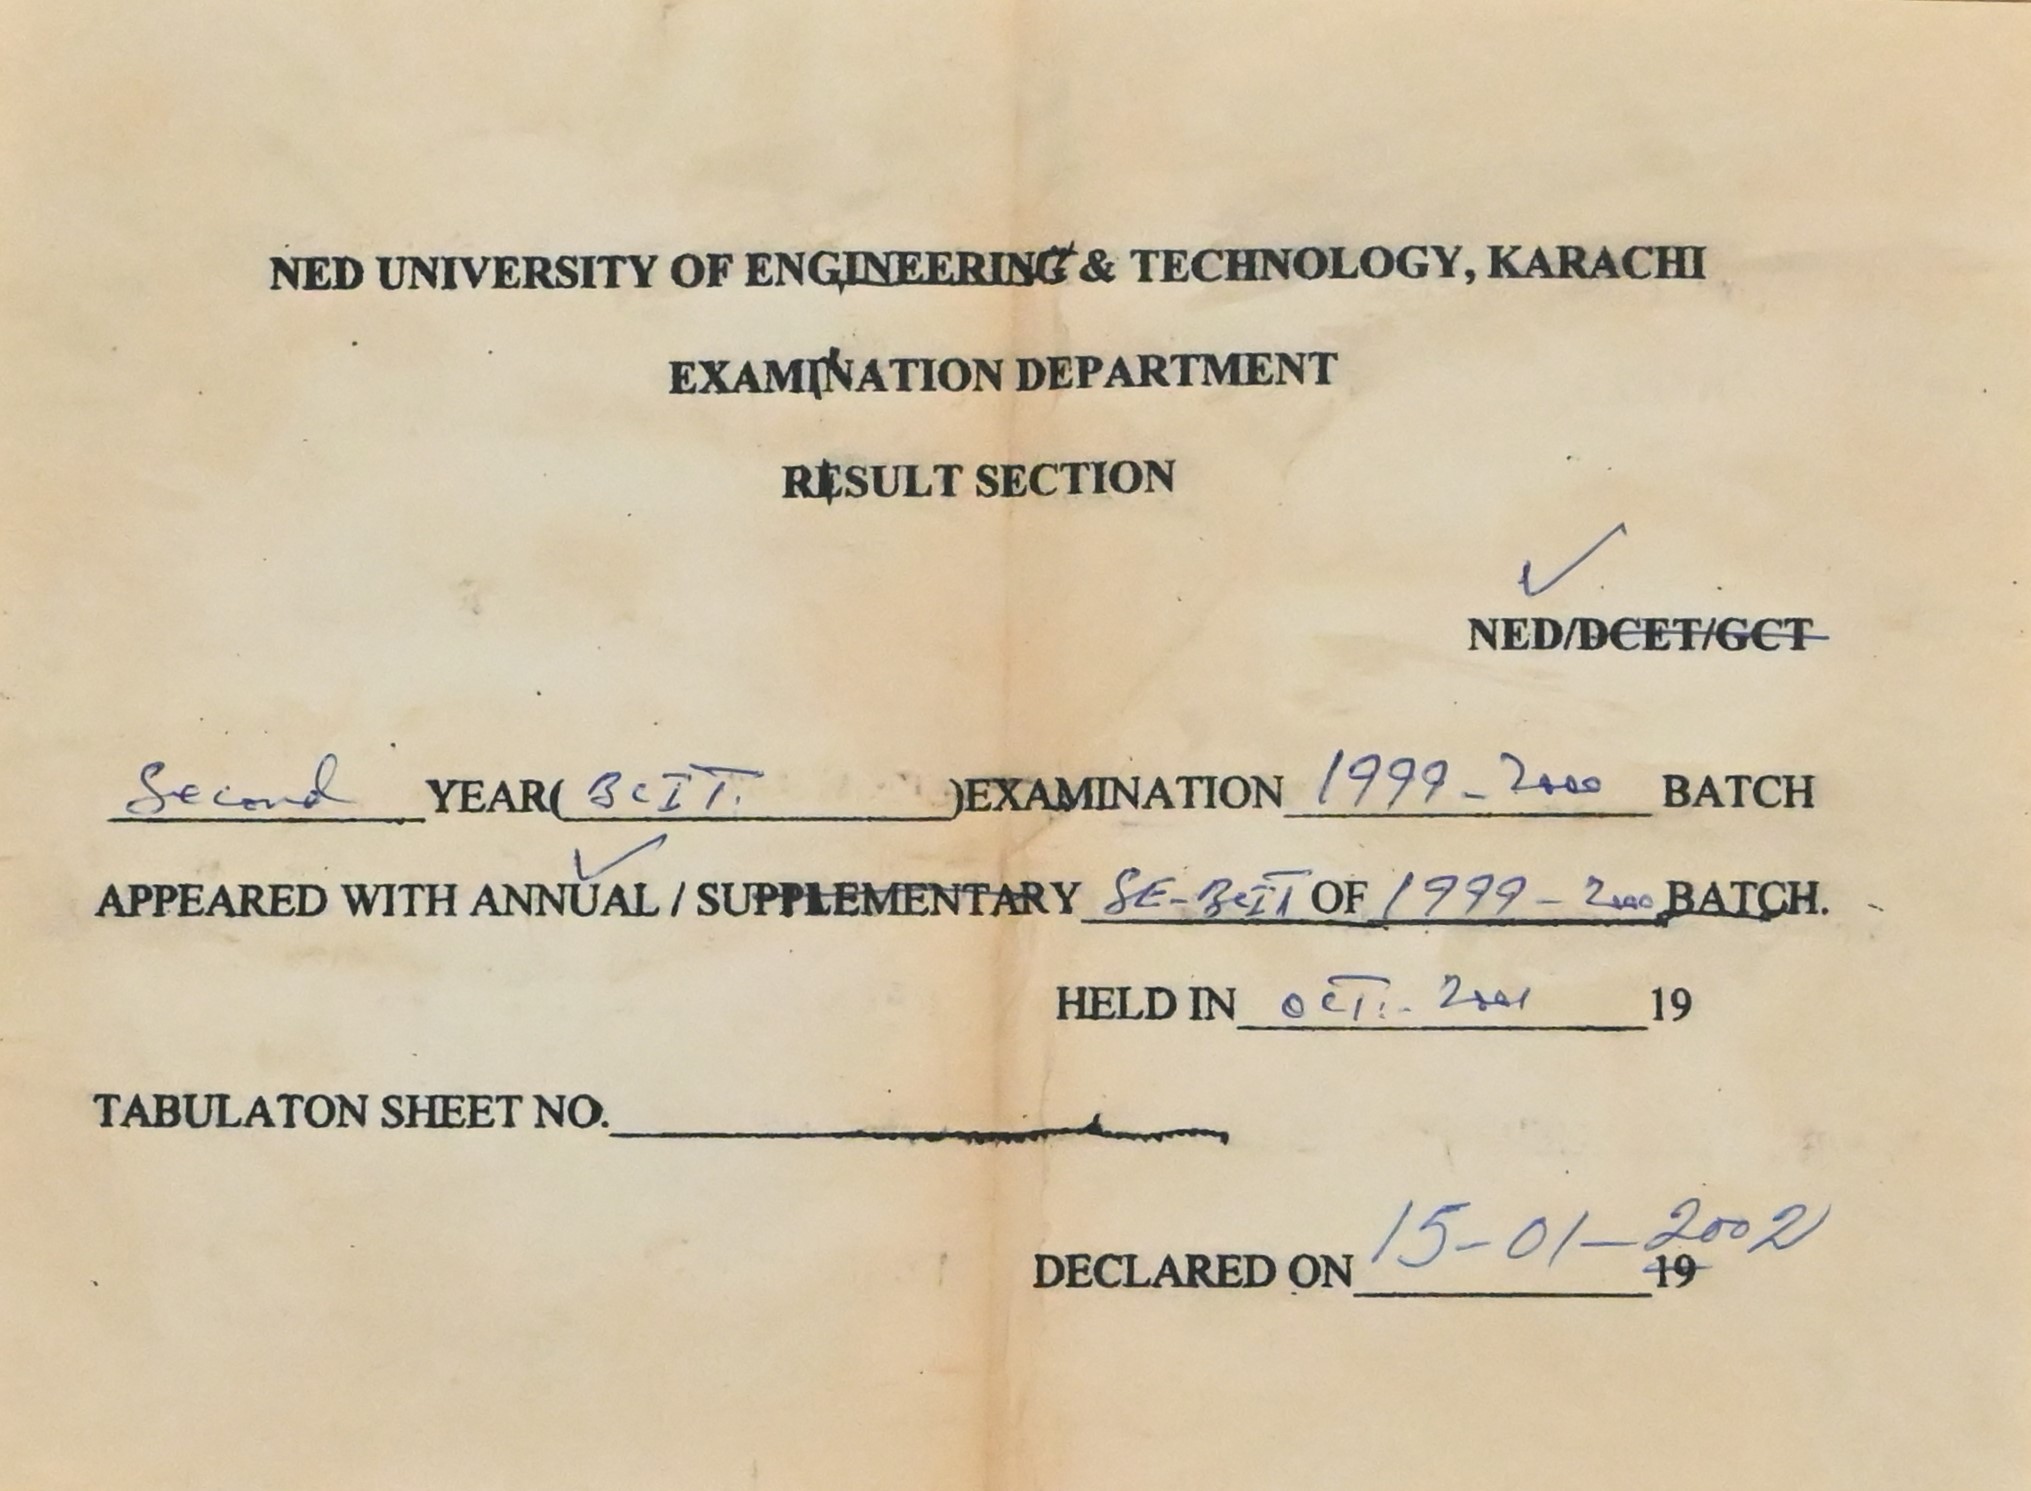 NED UNIVERSITY OF ENGINEERING & TECHNOLOGY, KARACHI
EXAMINATION DEPARTMENT
RESULT SECTION
NED/DCET/GCT
Second YEAR( BCIT. )EXAMINATION 1999-2000 BATCH
APPEARED WITH ANNUAL / SUPPLEMENTARY SE-BCIT OF 1999-2000 BATCH.
HELD IN OCT. 2001 19
TABULATON SHEET NO.
15-01-2002
DECLARED ON 19